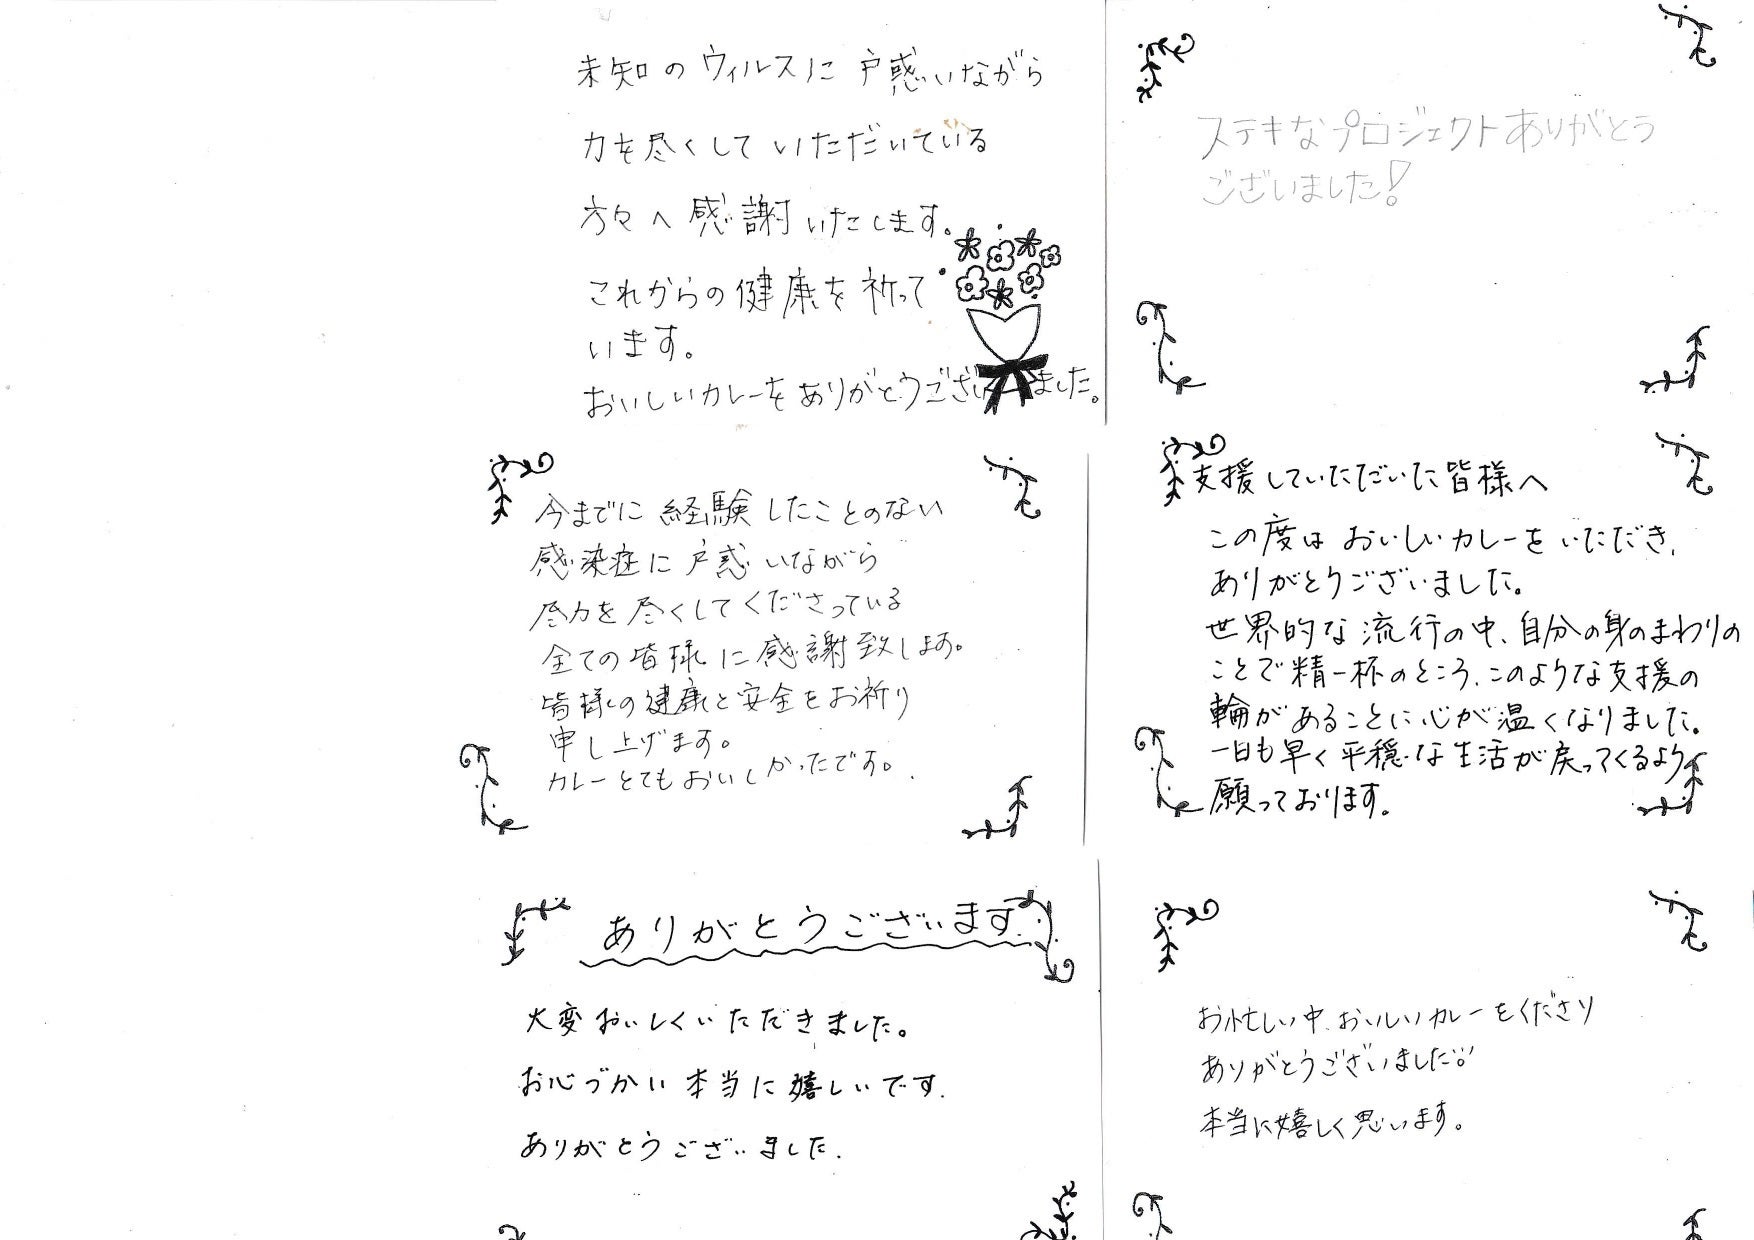 未知のウィルスに戸惑いながら
力を尽くしていただいている
方々へ感謝いたします。
これからの健康を祈って
います。
おいしいカレーをありがとうございました。
ステキなプロジェクトありがとう
ございました!
今までに経験したことのない
感染症に戸惑いながら
尽力を尽くしてくださっている
全ての皆様に感謝致します。
皆様の健康と安全をお祈り
申し上げます。
カレーとてもおいしかったです。
支援していただいた皆様へ
この度はおいしいカレーをいただき、
ありがとうございました。
世界的な流行の中、自分の身のまわりの
ことで精一杯のところ、このような支援の
輪があることに心が温くなりました。
一日も早く平穏な生活が戻ってくるよう
願っております。
ありがとうございます
大変おいしくいただきました。
お心づかい本当に嬉しいです.
ありがとうございました.
お忙しい中、おいしいカレーをくださり
ありがとうございました!!
本当に嬉しく思います。